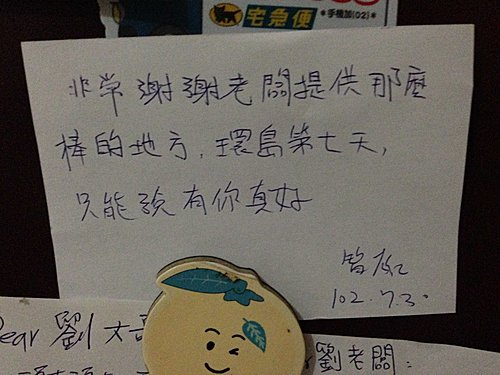 宅急便
*手機加(02)*
非常謝謝老闆提供那麼
棒的地方，環島第七天，
只能說有你真好
102.7.3.
Dear 劉大哥
劉老闆：